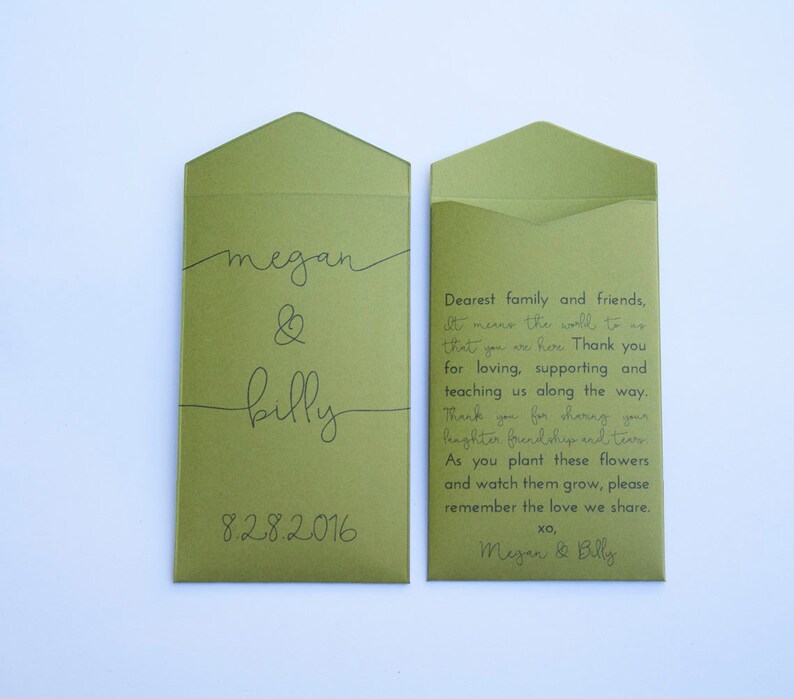 megan
&
billy
8.28.2016
Dearest family and friends,
It means the world to us
that you are here. Thank you
for loving, supporting and
teaching us along the way.
Thank you for sharing your
laughter, friendship and tears.
As you plant these flowers
and watch them grow, please
remember the love we share.
xo,
Megan & Billy